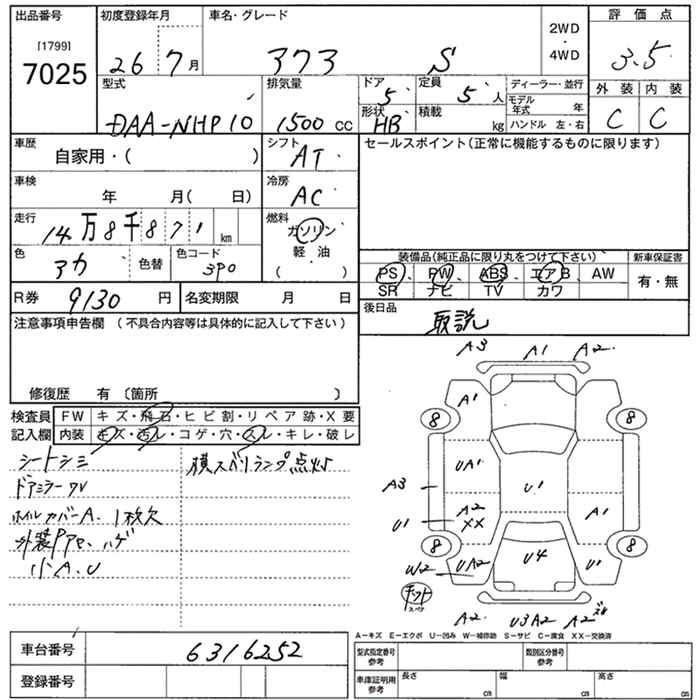 出品番号
[1799]
7025
初度登録年月
26 7 月
車名・グレード
アクア S
2WD
・
4WD
評価点
3.5
外装 内装
C C
型式
DAA-NHP10
排気量
1500 CC
ドア 5
定員 5 人
形状 HB
積載 kg
ディーラー・並行
モデル年式 年
ハンドル 左・右
車歴
自家用・( )
シフト
AT
車検
年 月( 日)
冷房
AC
走行
14万8千871 km
燃料
ガソリン
軽・油
( )
色
アカ
色替
色コード
3P0
R券 9130 円
名変期限 月 日
セールスポイント(正常に機能するものに限ります)
装備品(純正品に限り丸をつけて下さい)
PS PW ABS エアB AW
SR ナビ TV カワ
新車保証書
有・無
後日品
取説
注意事項申告欄 (不具合内容等は具体的に記入して下さい)
修復歴 有 〔箇所 〕
検査員記入欄
FW キズ・飛石・ヒビ割・リペア跡・X要
内装 キズ・汚レ・コゲ・穴・スレ・キレ・破レ
シートシミ
横スベリランプ点灯
ドアミラーウV
ホイルカバーA、1枚欠
外装PアセB、ハゲ
小A.U
A3 A1 A2
8 A1 8
UA1
A3
U1
U1
A2
XX
A1
8 8
W2 UA2 U4 U1
A2 U3A2 A2
A-キズ E-エクボ U-凹み W-補修跡 S-サビ C-腐食 XX-交換済
車台番号 6316252
登録番号
型式指定番号
参考
類別区分番号
参考
車庫証明用
参考
長さ cm
幅 cm
高さ cm